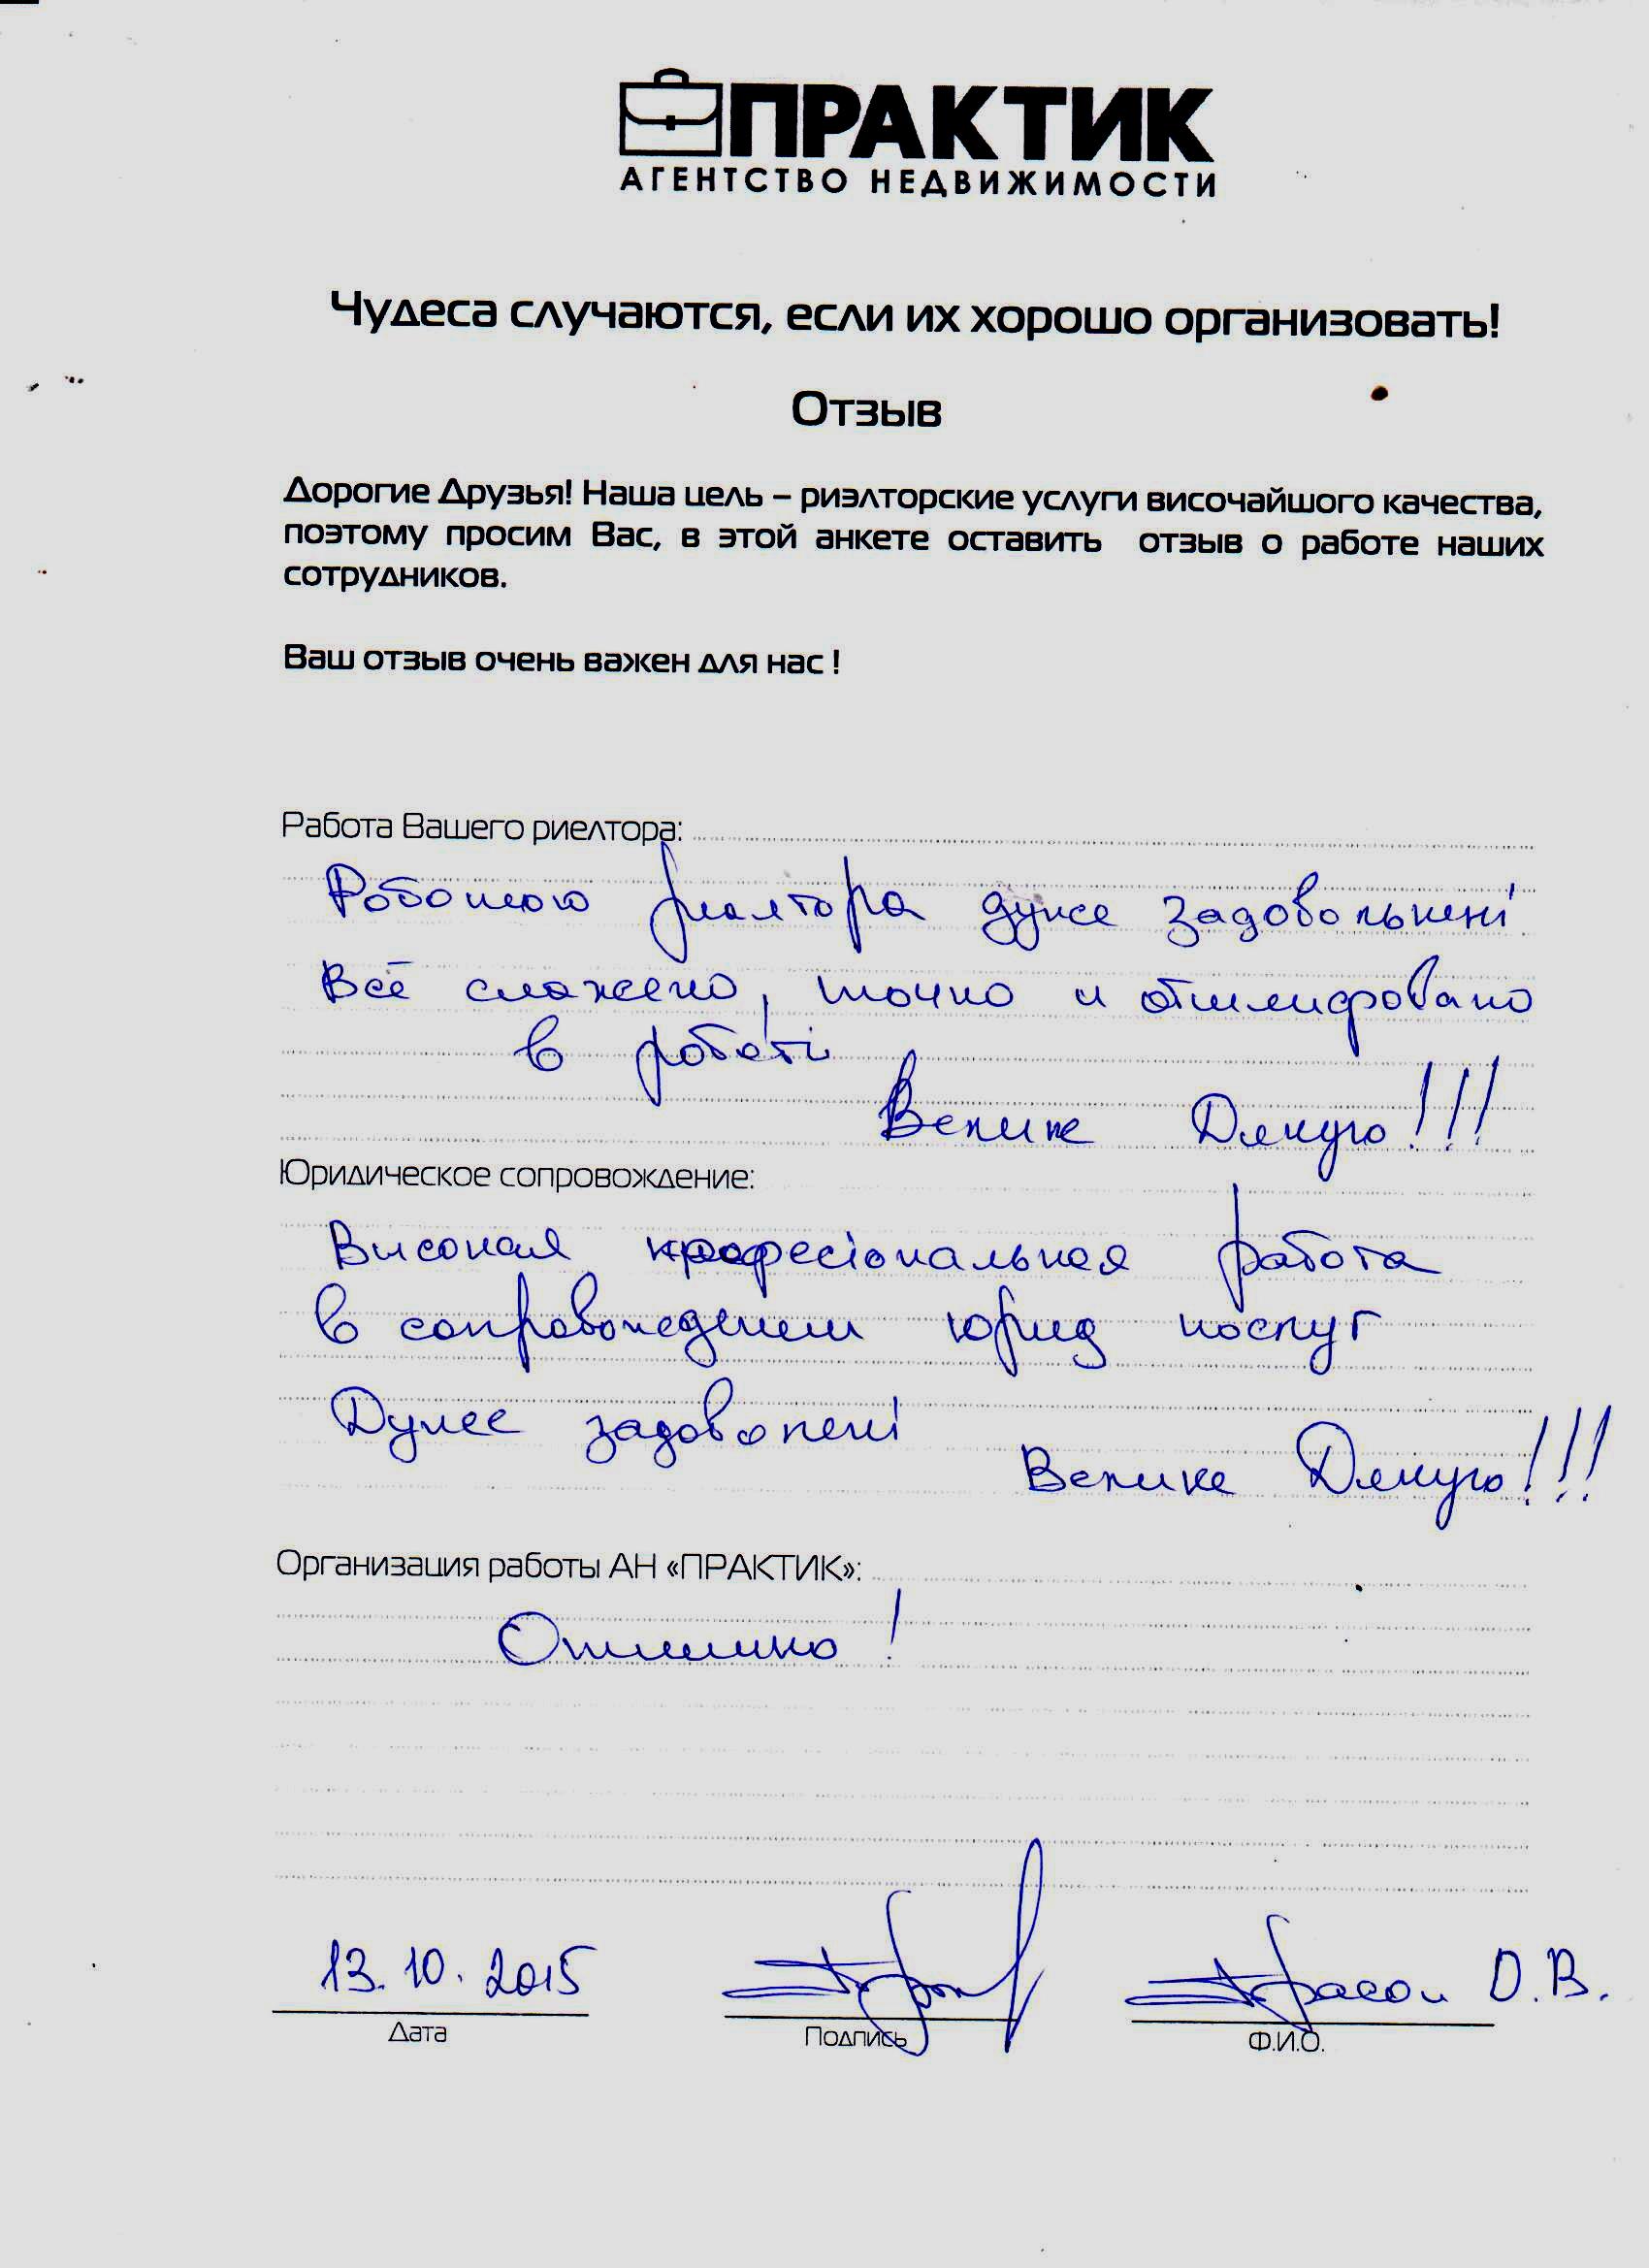 ПРАКТИК
АГЕНТСТВО НЕДВИЖИМОСТИ
Чудеса случаются, если их хорошо организовать!
Отзыв
Дорогие Друзья! Наша цель – риэлторские услуги височайшого качества,
поэтому просим Вас, в этой анкете оставить отзыв о работе наших
сотрудников.
Ваш отзыв очень важен для нас !
Работа Вашего риелтора:
Роботою риалтора дуже задовольнені
Всё слажено, точно и отшлифовано
в роботі
Велике Дякую!!!
Юридическое сопровождение:
Високая професіональная работа
в сопровождении юрид послуг
Дуже задоволені
Велике Дякую!!!
Организация работы АН «ПРАКТИК»:
Отлично !
13.10.2015
О.В.
Дата
Подпись
Ф.И.О.